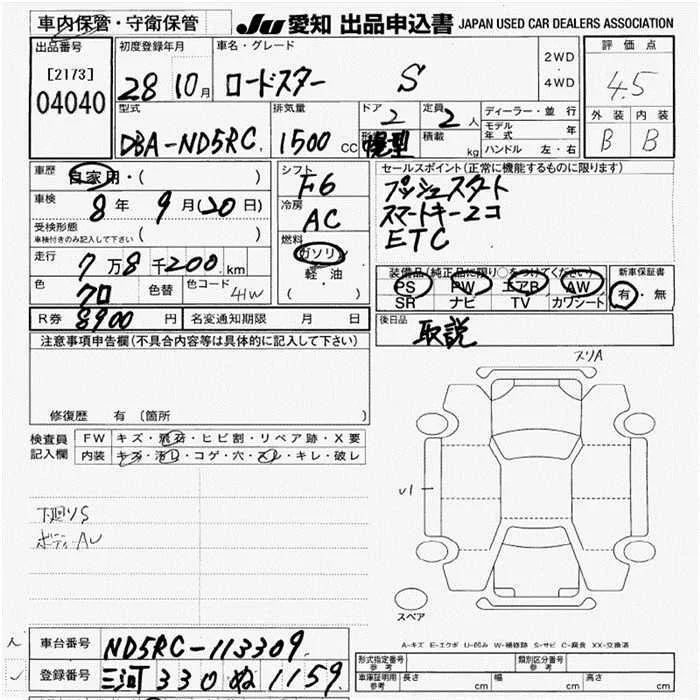 車内保管・守衛保管
JU 愛知 出品申込書 JAPAN USED CAR DEALERS ASSOCIATION
出品番号
[2173]
04040
初度登録年月
28 10月
車名・グレード
ロードスター S
2WD
4WD
評価点
4.5
外装 内装
B B
型式
DBA-ND5RC
排気量
1500 CC
ドア
2
定員
2 人
積載
kg
ディーラー・並行
モデル年式 年
ハンドル 左・右
車歴
自家用・( )
車検
8年 9月(20日)
受検形態
車検付きのみ記入して下さい ( )
走行
7万8千200km
色
クロ
色替
色コード
41W
R券 8900円
名変通知期限 月 日
シフト
F6
冷房
AC
燃料
ガソリン
軽・油
( )
セールスポイント(正常に機能するものに限ります)
プッシュスタート
スマートキー2コ
ETC
装備品(純正品に限り○をつけてください)
PS PW エアB AW
SR ナビ TV カワシート
新車保証書
有・無
後日品
取説
注意事項申告欄(不具合内容等は具体的に記入して下さい)
修復歴 有(箇所 )
検査員記入欄
FW キズ・飛石・ヒビ割・リペア跡・X要
内装 キズ・汚レ・コゲ・穴・スレ・キレ・破レ
下廻りS
スリA
U1
スペア
A-キズ E-エクボ U-凹み W-補修跡 S-サビ C-腐食 XX-交換済
車台番号 ND5RC-113309
登録番号 三河 330 ぬ 1159
形式指定番号
参考
類別区分番号
参考
車庫証明用
参考
長さ cm 幅 cm 高さ cm